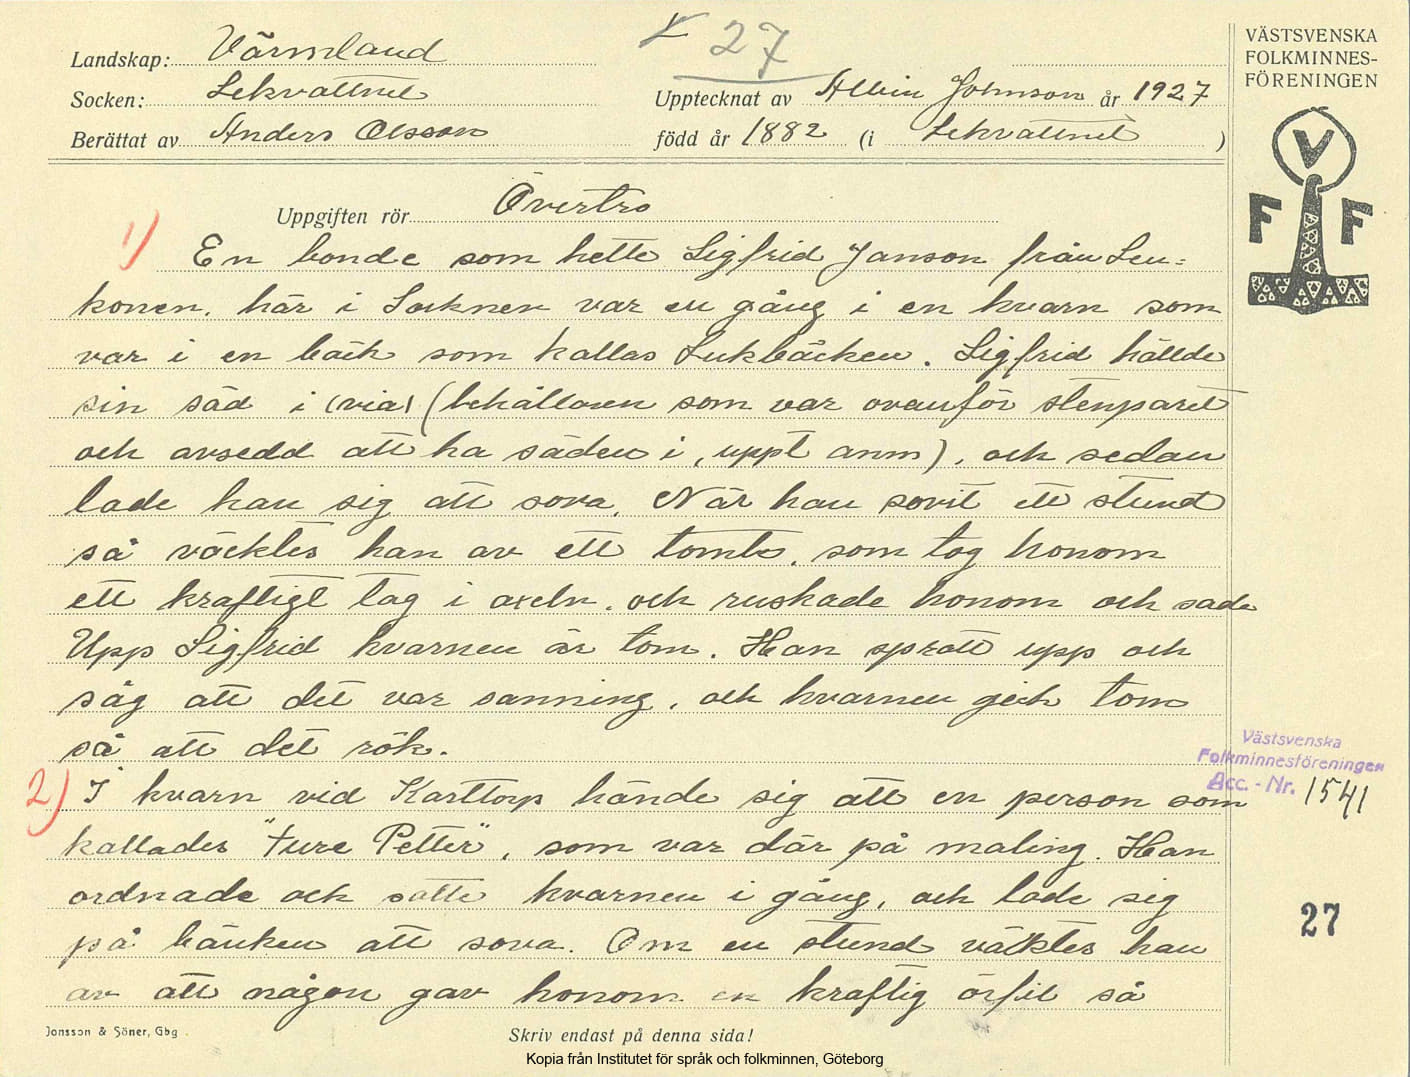 Landskap: Värmland
Socken: Lekvattnet
Berättat av Anders Olsson
27
Upptecknat av Albin Johnson år 1927
född år 1882 (i Lekvattnet )
VÄSTSVENSKA
FOLKMINNES-
FÖRENINGEN
V
F F
Uppgiften rör Övertro
1) En bonde som hette Sigfrid Janson från Leu=
konen. här i Socknen var en gång i en kvarn som
var i en bäck som kallas Lukbäcken. Sigfrid hällde
sin säd i (via) (behållaren som var ovanför stenparet
och avsedd att ha säden i, uppt anm), och sedan
lade han sig att sova. När han sovit ett stund
så väcktes han av ett tomte, som tog honom
ett kraftigt tag i axeln. och ruskade honom och sade
Upp Sigfrid kvarnen är tom. Han spratt upp och
såg att det var sanning, och kvarnen gick tom
så att det rök.
2) I kvarn vid Karttorp hände sig att en person som
kallades "ture Petter", som var där på maling. Han
ordnade och satte kvarnen i gång, och lade sig
på bänken att sova. Om en stund väcktes han
av att någon gav honom en kraftig örfil så
Västsvenska
Folkminnesföreningen
Acc. - Nr. 1541
27
Jonsson & Söner, Gbg.
Skriv endast på denna sida!
Kopia från Institutet för språk och folkminnen, Göteborg